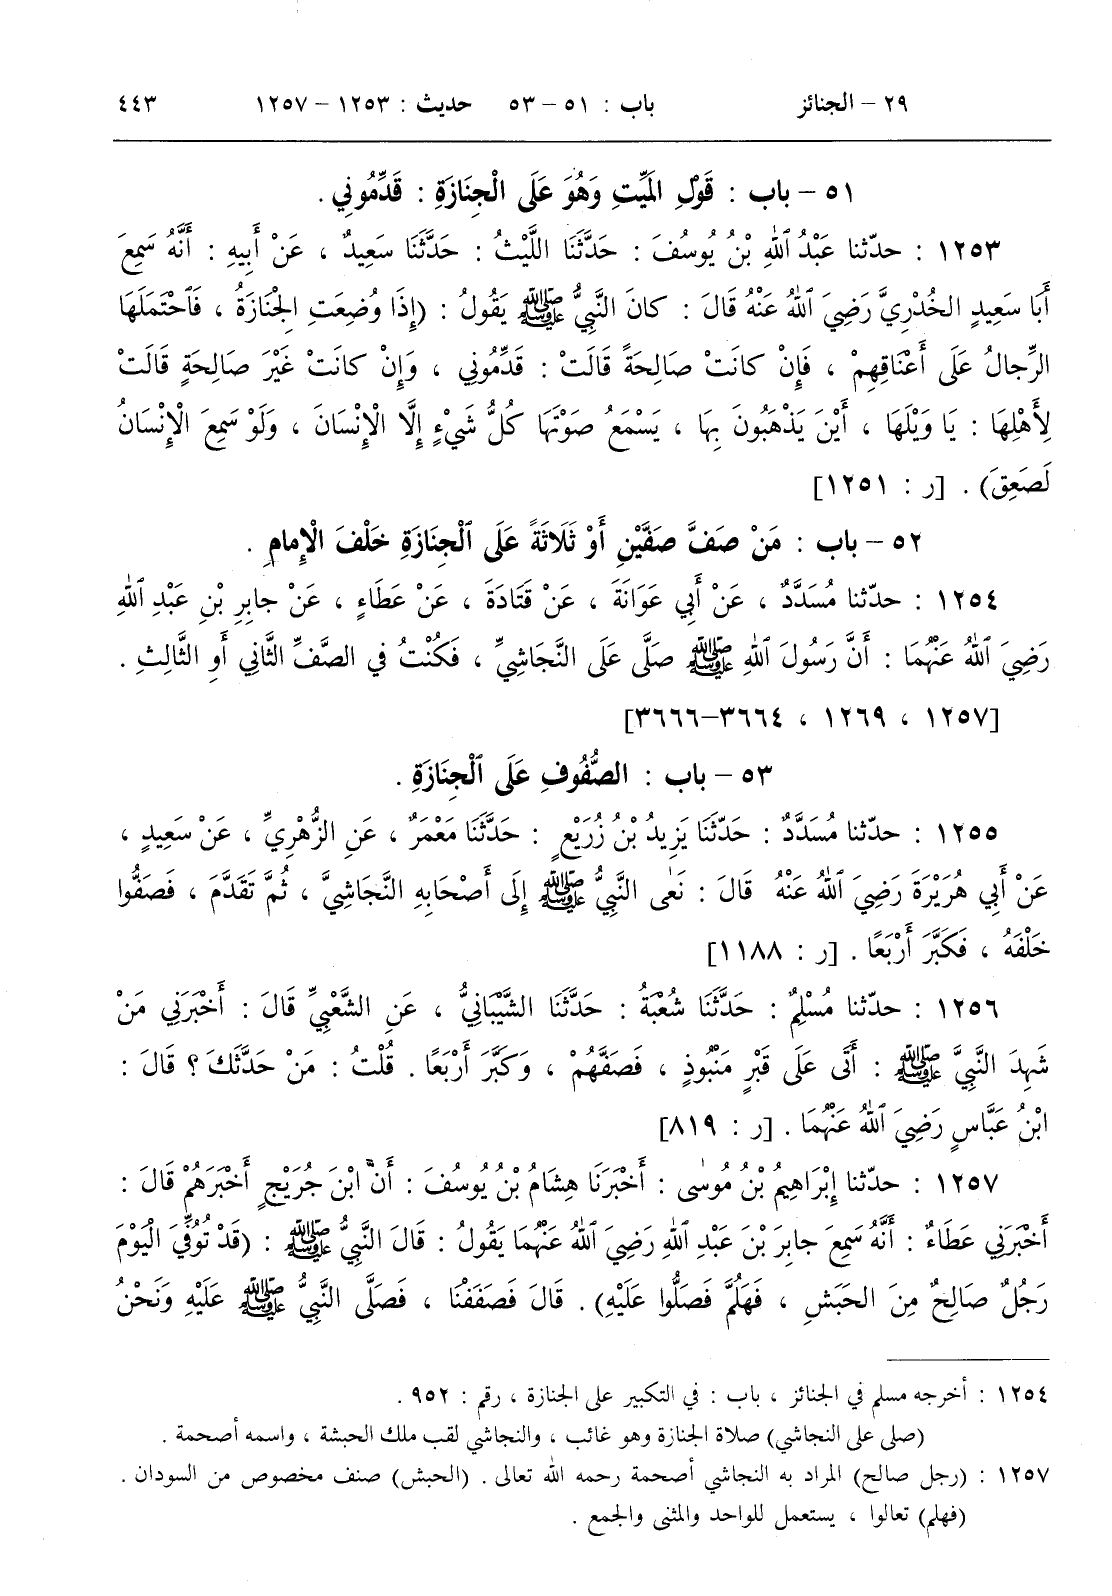 ٢٩ – الجنائز باب : ٥١ – ٥٣ حديث : ١٢٥٣ – ١٢٥٧ ٤٤٣
٥١ – باب : قَوْلِ المَيِّتِ وَهُوَ عَلَى الْجِنَازَةِ : قَدِّمُونِي .
١٢٥٣ : حدّثنا عَبْدُ ٱللهِ بْنُ يُوسُفَ : حَدَّثَنَا اللَّيْثُ : حَدَّثَنَا سَعِيدٌ ، عَنْ أَبِيهِ : أَنَّهُ سَمِعَ
أَبَا سَعِيدٍ الخُدْرِيَّ رَضِيَ ٱللهُ عَنْهُ قَالَ : كانَ النَّبِيُّ ﷺ يَقُولُ : (إِذَا وُضِعَتِ الْجِنَازَةُ ، فَٱحْتَمَلَهَا
الرِّجالُ عَلَى أَعْنَاقِهِمْ ، فَإِنْ كانَتْ صَالِحَةً قَالَتْ : قَدِّمُونِي ، وَإِنْ كانَتْ غَيْرَ صَالِحَةٍ قَالَتْ
لِأَهْلِهَا : يَا وَيْلَهَا ، أَيْنَ يَذْهَبُونَ بِهَا ، يَسْمَعُ صَوْتَهَا كُلُّ شَيْءٍ إِلَّا الْإِنْسَانَ ، وَلَوْ سَمِعَ الْإِنْسَانُ
لَصَعِقَ) . [ر : ١٢٥١]
٥٢ – باب : مَنْ صَفَّ صَفَّيْنِ أَوْ ثَلَاثَةً عَلَى ٱلْجِنَازَةِ خَلْفَ الْإِمامِ .
١٢٥٤ : حدّثنا مُسَدَّدٌ ، عَنْ أَبِي عَوَانَةَ ، عَنْ قَتَادَةَ ، عَنْ عَطَاءٍ ، عَنْ جابِرِ بْنِ عَبْدِ ٱللهِ
رَضِيَ ٱللهُ عَنْهُمَا : أَنَّ رَسُولَ ٱللهِ ﷺ صَلَّى عَلَى النَّجَاشِيِّ ، فَكُنْتُ فِي الصَّفِّ الثَّانِي أَوِ الثَّالِثِ .
[١٢٥٧ ، ١٢٦٩ ، ٣٦٦٤–٣٦٦٦]
٥٣ – باب : الصُّفُوفِ عَلَى ٱلْجِنَازَةِ .
١٢٥٥ : حدّثنا مُسَدَّدٌ : حَدَّثَنَا يَزِيدُ بْنُ زُرَيْعٍ : حَدَّثَنَا مَعْمَرٌ ، عَنِ الزُّهْرِيِّ ، عَنْ سَعِيدٍ ،
عَنْ أَبِي هُرَيْرَةَ رَضِيَ ٱللهُ عَنْهُ قَالَ : نَعٰى النَّبِيُّ ﷺ إِلَى أَصْحَابِهِ النَّجَاشِيَّ ، ثُمَّ تَقَدَّمَ ، فَصَفُّوا
خَلْفَهُ ، فَكَبَّرَ أَرْبَعًا . [ر : ١١٨٨]
١٢٥٦ : حدّثنا مُسْلِمٌ : حَدَّثَنَا شُعْبَةُ : حَدَّثَنَا الشَّيْبَانِيُّ ، عَنِ الشَّعْبِيِّ قَالَ : أَخْبَرَنِي مَنْ
شَهِدَ النَّبِيَّ ﷺ : أَتَى عَلَى قَبْرٍ مَنْبُوذٍ ، فَصَفَّهُمْ ، وَكَبَّرَ أَرْبَعًا . قُلْتُ : مَنْ حَدَّثَكَ ؟ قَالَ :
ابْنُ عَبَّاسٍ رَضِيَ ٱللهُ عَنْهُمَا . [ر : ٨١٩]
١٢٥٧ : حدّثنا إِبْرَاهِيمُ بْنُ مُوسٰى : أَخْبَرَنَا هِشَامُ بْنُ يُوسُفَ : أَنَّ ابْنَ جُرَيْجٍ أَخْبَرَهُمْ قَالَ :
أَخْبَرَنِي عَطَاءٌ : أَنَّهُ سَمِعَ جابِرَ بْنَ عَبْدِ ٱللهِ رَضِيَ ٱللهُ عَنْهُمَا يَقُولُ : قَالَ النَّبِيُّ ﷺ : (قَدْ تُوُفِّيَ الْيَوْمَ
رَجُلٌ صَالِحٌ مِنَ الحَبَشِ ، فَهَلُمَّ فَصَلُّوا عَلَيْهِ) . قَالَ فَصَفَفْنَا ، فَصَلَّى النَّبِيُّ ﷺ عَلَيْهِ وَنَحْنُ
١٢٥٤ : أخرجه مسلم في الجنائز ، باب : في التكبير على الجنازة ، رقم : ٩٥٢ .
(صلى على النجاشي) صلاة الجنازة وهو غائب ، والنجاشي لقب ملك الحبشة ، واسمه أصحمة .
١٢٥٧ : (رجل صالح) المراد به النجاشي أصحمة رحمه الله تعالى . (الحبش) صنف مخصوص من السودان .
(فهلم) تعالوا ، يستعمل للواحد والمثنى والجمع .